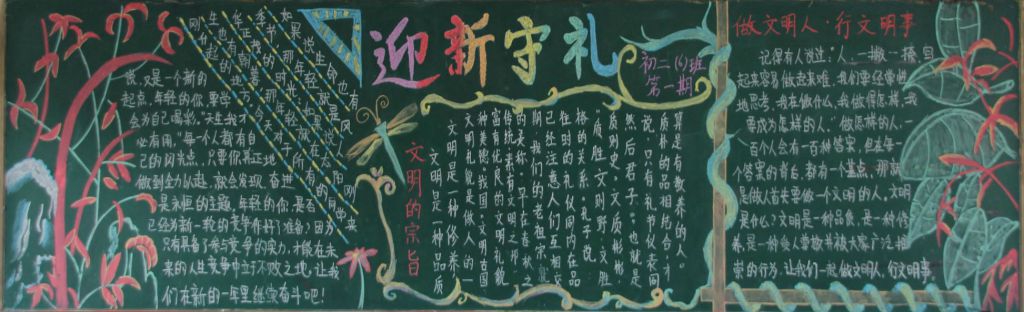 迎新守礼
初二(6)班
第一期
如果说生命也有风
季节，那年轻就是
华正茂的时光，年轻
说，又是一个新的
起点，年轻的你，要学
会为自己喝彩。"天生我才
必有用。"每一个人都有自
己的闪光点，只要你真正地
做到全力以赴，就会发现，奋进
是永恒的主题。年轻的你，是否
已经为新一轮的竞争作好了准备？因为
只有具备了参与竞争的实力，才能在未
来的人生竞争中立于不败之地，让我
们在新的一年里继续奋斗吧！
文明的宗旨
文明是一种品质
文明是一种修养
文明礼貌是做人的一
种美德。我国文明古国
富有优良的文明礼貌
传统，素有"文明之邦
的美称。早在春秋之
期，我们的老祖宗
已经注意人们互相交
往时的礼仪同内在品
格的关系。孔子说：
"质胜文则野，文胜
质则史，文质彬彬，
然后君子。"也就是
说，只有礼节仪表同
质朴的品格相结合，才
算是有教养的人。
做文明人·行文明事
记得有人说过："人，一撇一捺，写
起来容易做起来难。我们要经常性
地思考，我在做什么，我做得怎样，我
要成为怎样的人。"做怎样的人，一
百个人会有一百种答案，但在每一
个答案的背后，都有一个基点，那就
是做人首先要做一个文明的人。文明
是什么？文明是一种品质，是一种修
养，是一种受人尊敬并被大家广泛推
崇的行为。让我们一起做文明人，行文明事